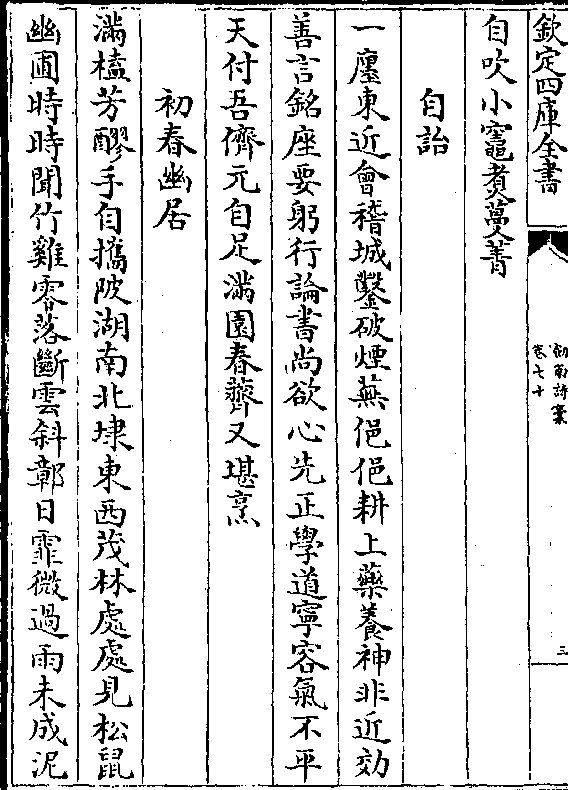 欽定四庫全書
劍南詩稾
卷七十
三
自吹小竈煑蔓菁
自詒
一廛東近會稽城鑿破煙蕪俋俋耕上藥養神非近効
善言銘座要躬行論書尚欲心先正學道寧容氣不平
天付吾儕元自足滿園春薺又堪烹
初春幽居
滿榼芳醪手自攜陂湖南北埭東西茂林處處見松鼠
幽圃時時聞竹雞零落斷雲斜鄣日霏微過雨未成泥